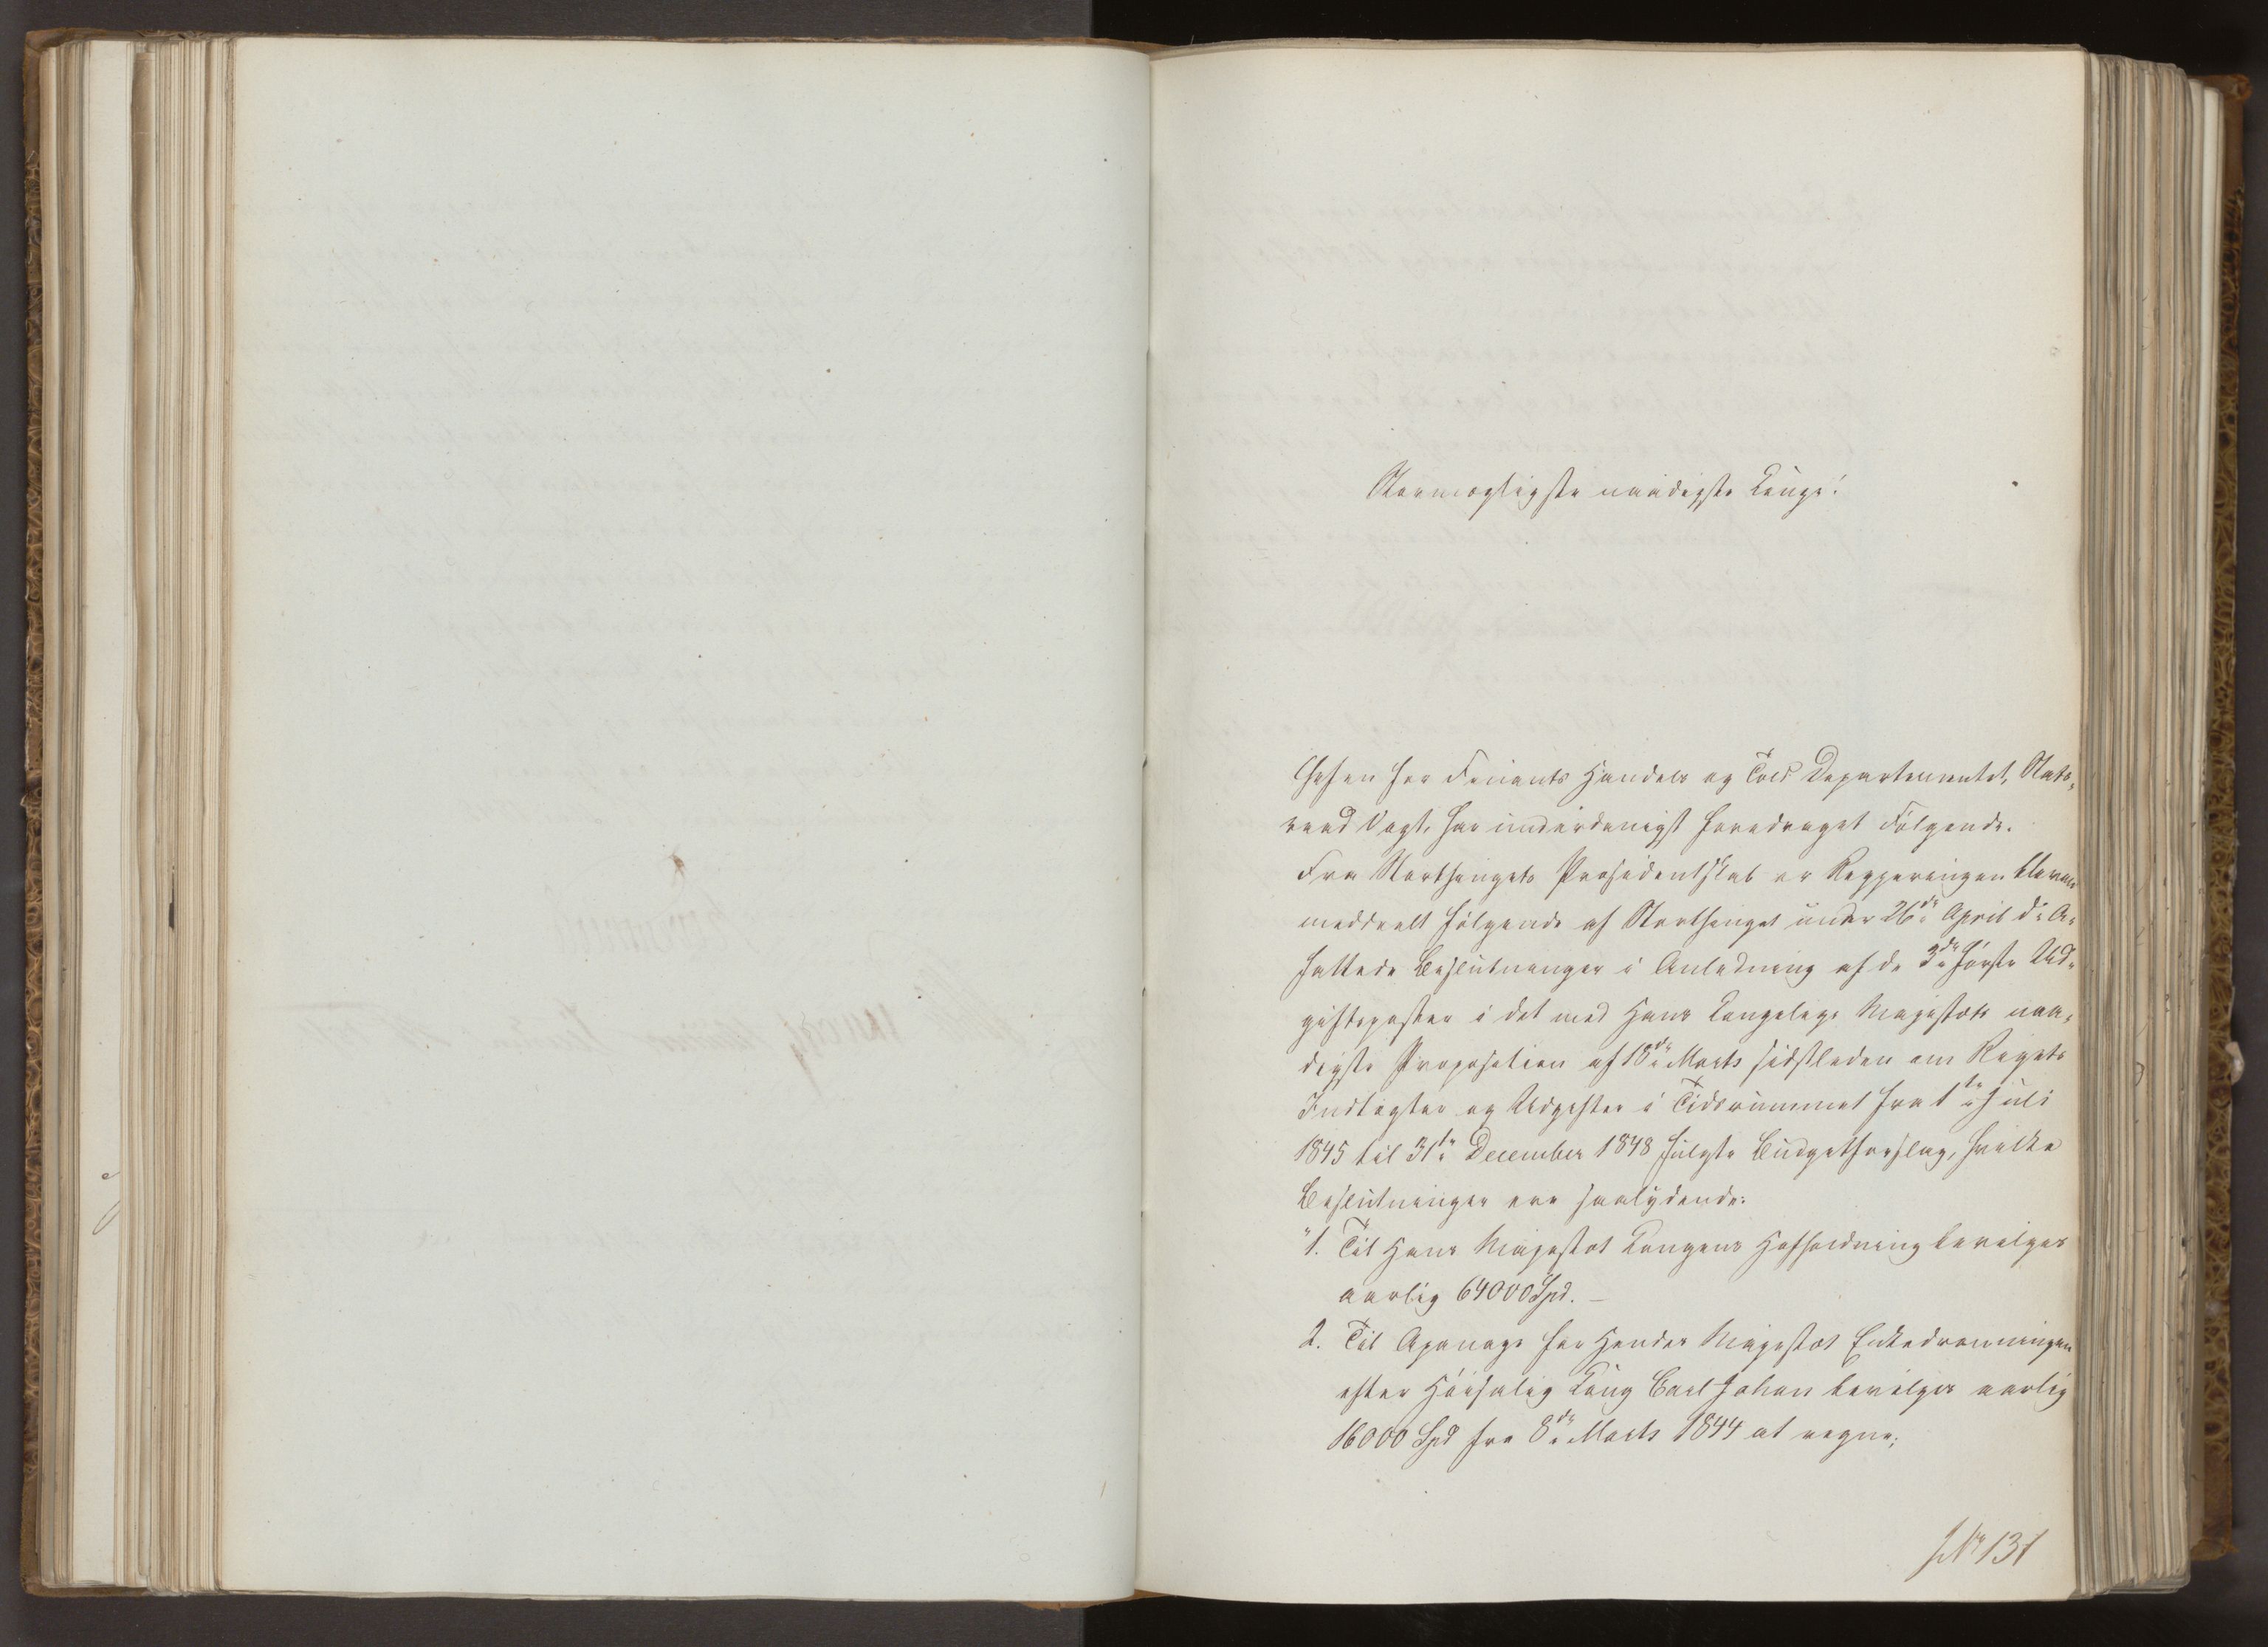 Stormægtigste naadigste Konge!
Chefen for Finants Handels og Told Departementet, Stats-
raad Vogt, har underdanigst foredraget Følgende.
Fra Storthingets Præsidentskab er Regjeringen bleven
meddeelt følgende af Storthinget under 26de April d: A:
fattede Beslutninger i Anledning af de 3de første Ud-
giftsposter i det med Hans Kongelige Majestæts naa-
digste Proposition af 18de Marts sidstleden om Rigets
Indtægter og Udgifter i Tidsrummet fra 1te Juli
1845 til 31te December 1848 fulgte Budgetforslag, hvilke
Beslutninger ere saalydende:
"1. Til Hans Majestæt Kongens Hofholdning bevilges
aarlig 64000 Spd. —
2. Til Apanage for Hendes Majestæt Enkedronningen
efter Høisalig Kong Carl Johan bevilges aarlig
16000 Spd fra 8de Marts 1844 at regne;
J. Nr 131